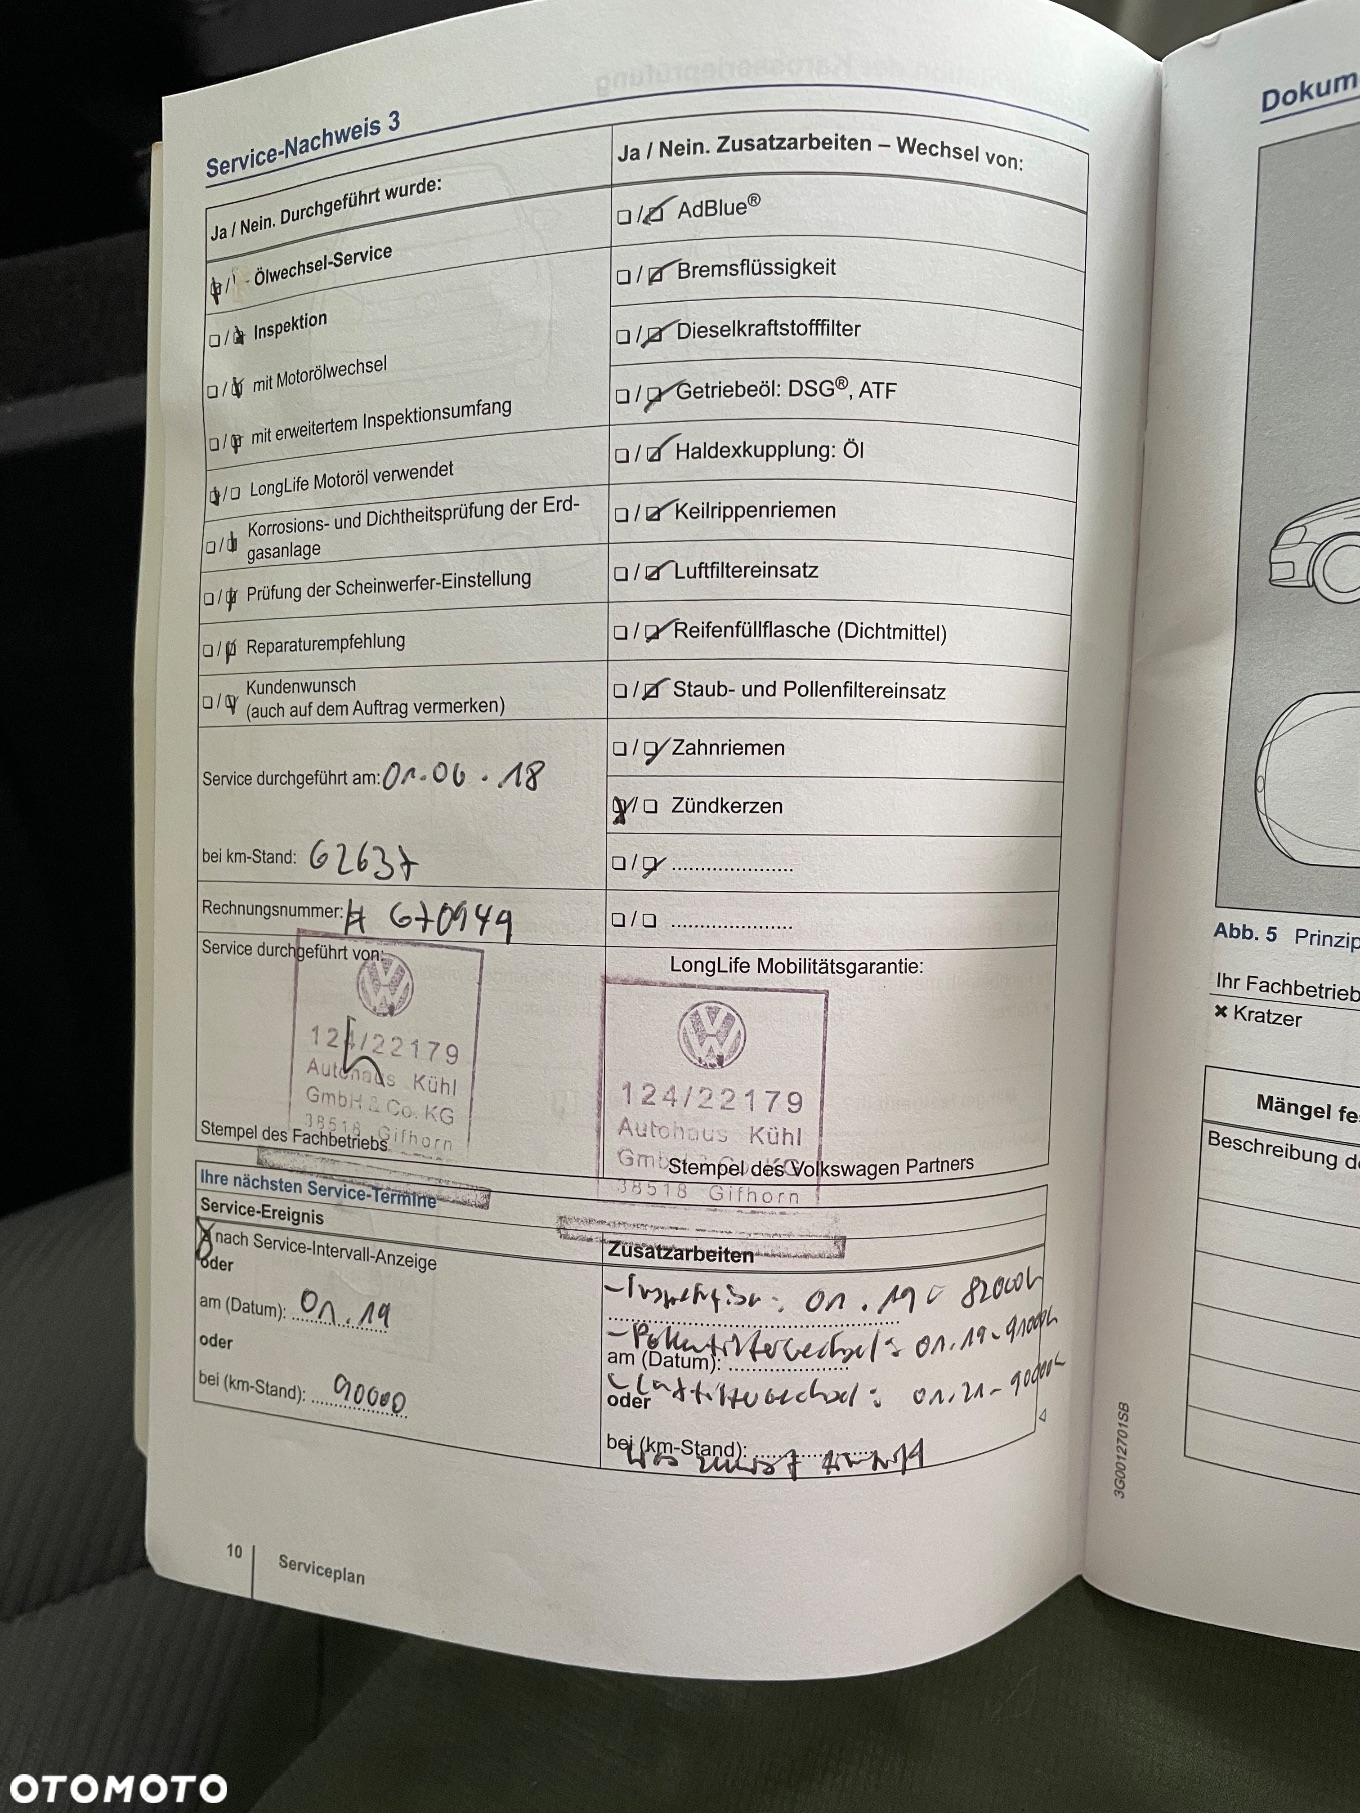 Service-Nachweis 3
Ja / Nein. Durchgeführt wurde:
Ölwechsel-Service
Inspektion
mit Motorölwechsel
mit erweitertem Inspektionsumfang
LongLife Motoröl verwendet
Korrosions- und Dichtheitsprüfung der Erd-
gasanlage
Prüfung der Scheinwerfer-Einstellung
Reparaturempfehlung
Kundenwunsch
(auch auf dem Auftrag vermerken)
Service durchgeführt am: 01.06.18
bei km-Stand: 62637
Rechnungsnummer: # 670949
Service durchgeführt von:
124/22179
Autohaus Kühl
GmbH & Co. KG
38518 Gifhorn
Stempel des Fachbetriebs
Ja / Nein. Zusatzarbeiten – Wechsel von:
AdBlue®
Bremsflüssigkeit
Dieselkraftstofffilter
Getriebeöl: DSG®, ATF
Haldexkupplung: Öl
Keilrippenriemen
Luftfiltereinsatz
Reifenfüllflasche (Dichtmittel)
Staub- und Pollenfiltereinsatz
Zahnriemen
Zündkerzen
......................
......................
LongLife Mobilitätsgarantie:
124/22179
Autohaus Kühl
GmbH & Co. KG
38518 Gifhorn
Stempel des Volkswagen Partners
Ihre nächsten Service-Termine
Service-Ereignis
nach Service-Intervall-Anzeige
oder
am (Datum): 01.19
oder
bei (km-Stand): 90000
Zusatzarbeiten
- Inspektion: 01.19
- Pollenfilterwechsel: 01.19
am (Datum):
- Luftfilterwechsel: 01.21 -
oder
bei (km-Stand):
10
Serviceplan
3G0012701SB
Dokum
Abb. 5 Prinzip
Ihr Fachbetrieb
× Kratzer
Mängel fe
Beschreibung d
OTOMOTO